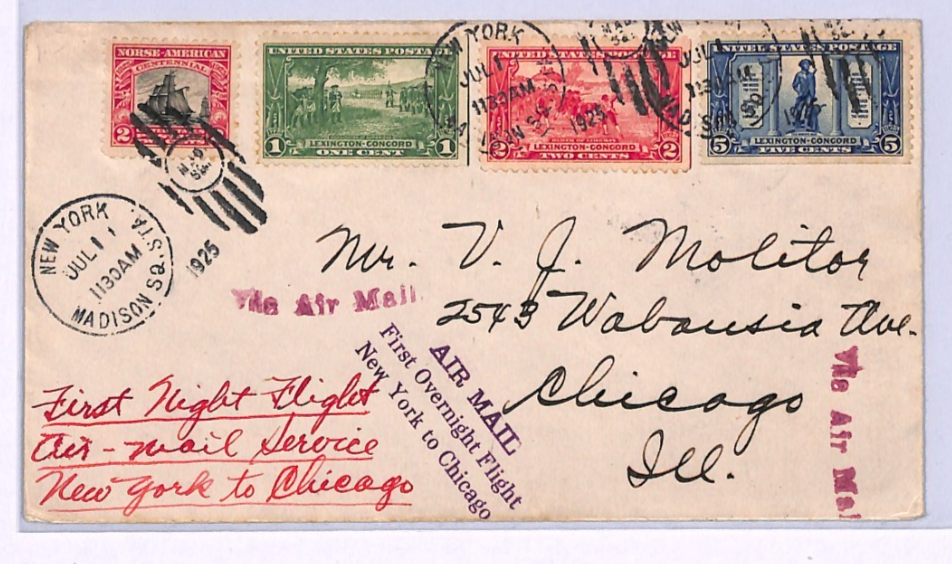 NORSE-AMERICAN
CENTENNIAL
2
UNITED STATES POSTAGE
1 LEXINGTON-CONCORD 1
ONE CENT
UNITED STATES POSTAGE
2 LEXINGTON-CONCORD 2
TWO CENTS
UNITED STATES POSTAGE
5 LEXINGTON-CONCORD 5
FIVE CENTS
NEW YORK
JUL 1
1130AM
1925
NEW YORK
JUL 1
1130AM
MADISON SQ. STA.
1925
Mr. V. J. Molitor
2543 Wabansia Ave.
Chicago
Ill.
Via Air Mail
AIR MAIL
First Overnight Flight
New York to Chicago
Via Air Mail
First Night Flight
Air-mail Service
New York to Chicago